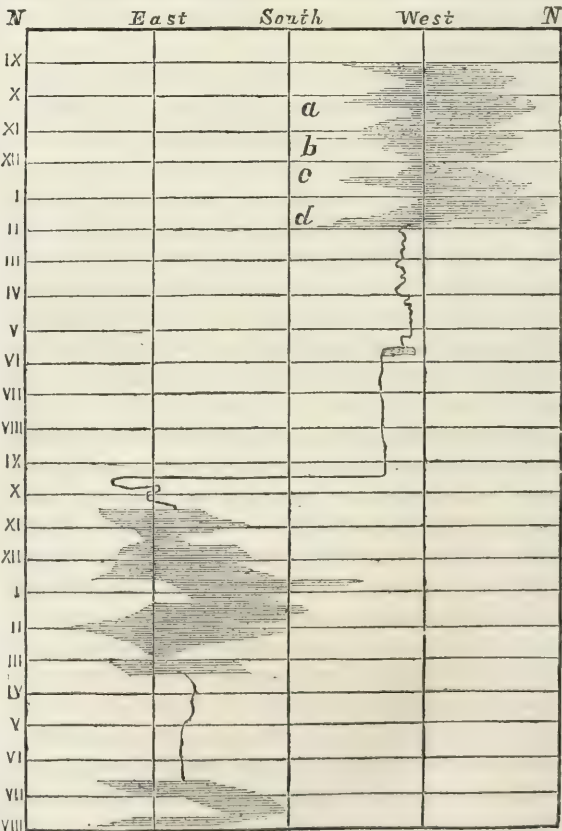 N East South West N
IX
X
a
XI
b
XII
c
I
d
II
III
IV
V
VI
VII
VIII
IX
X
XI
XII
I
II
III
IV
V
VI
VII
VIII